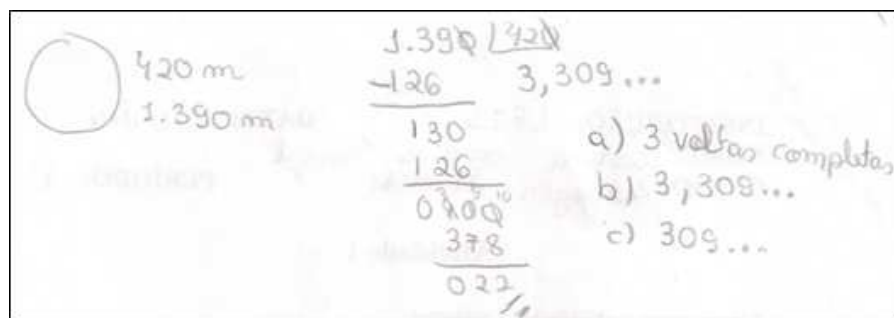 420 m
1.390 m
1.390 420
-126 3,309...
130
126
0400
378
022
a) 3 voltas completas
b) 3,309...
c) 309...